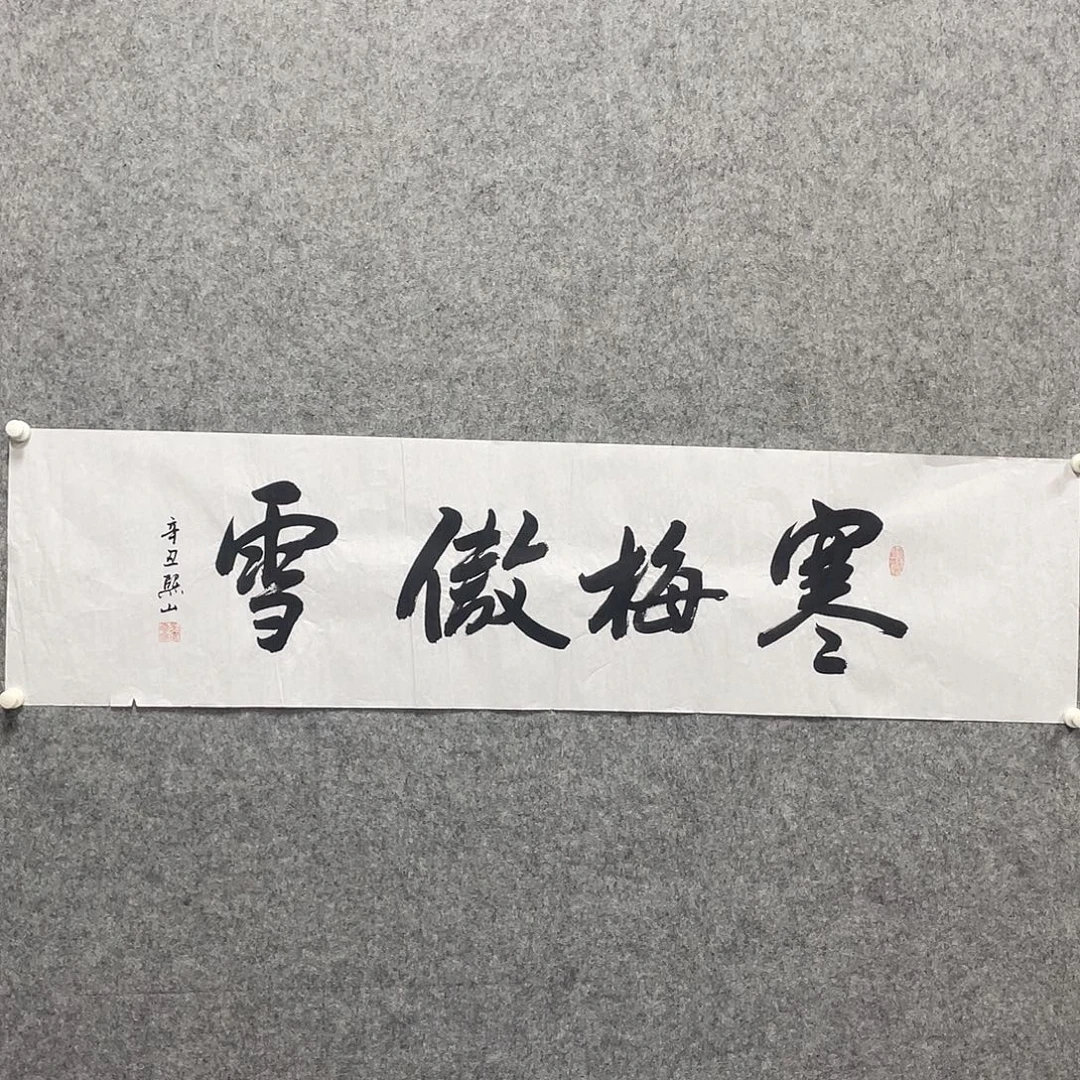 寒梅傲雪
辛丑熙山